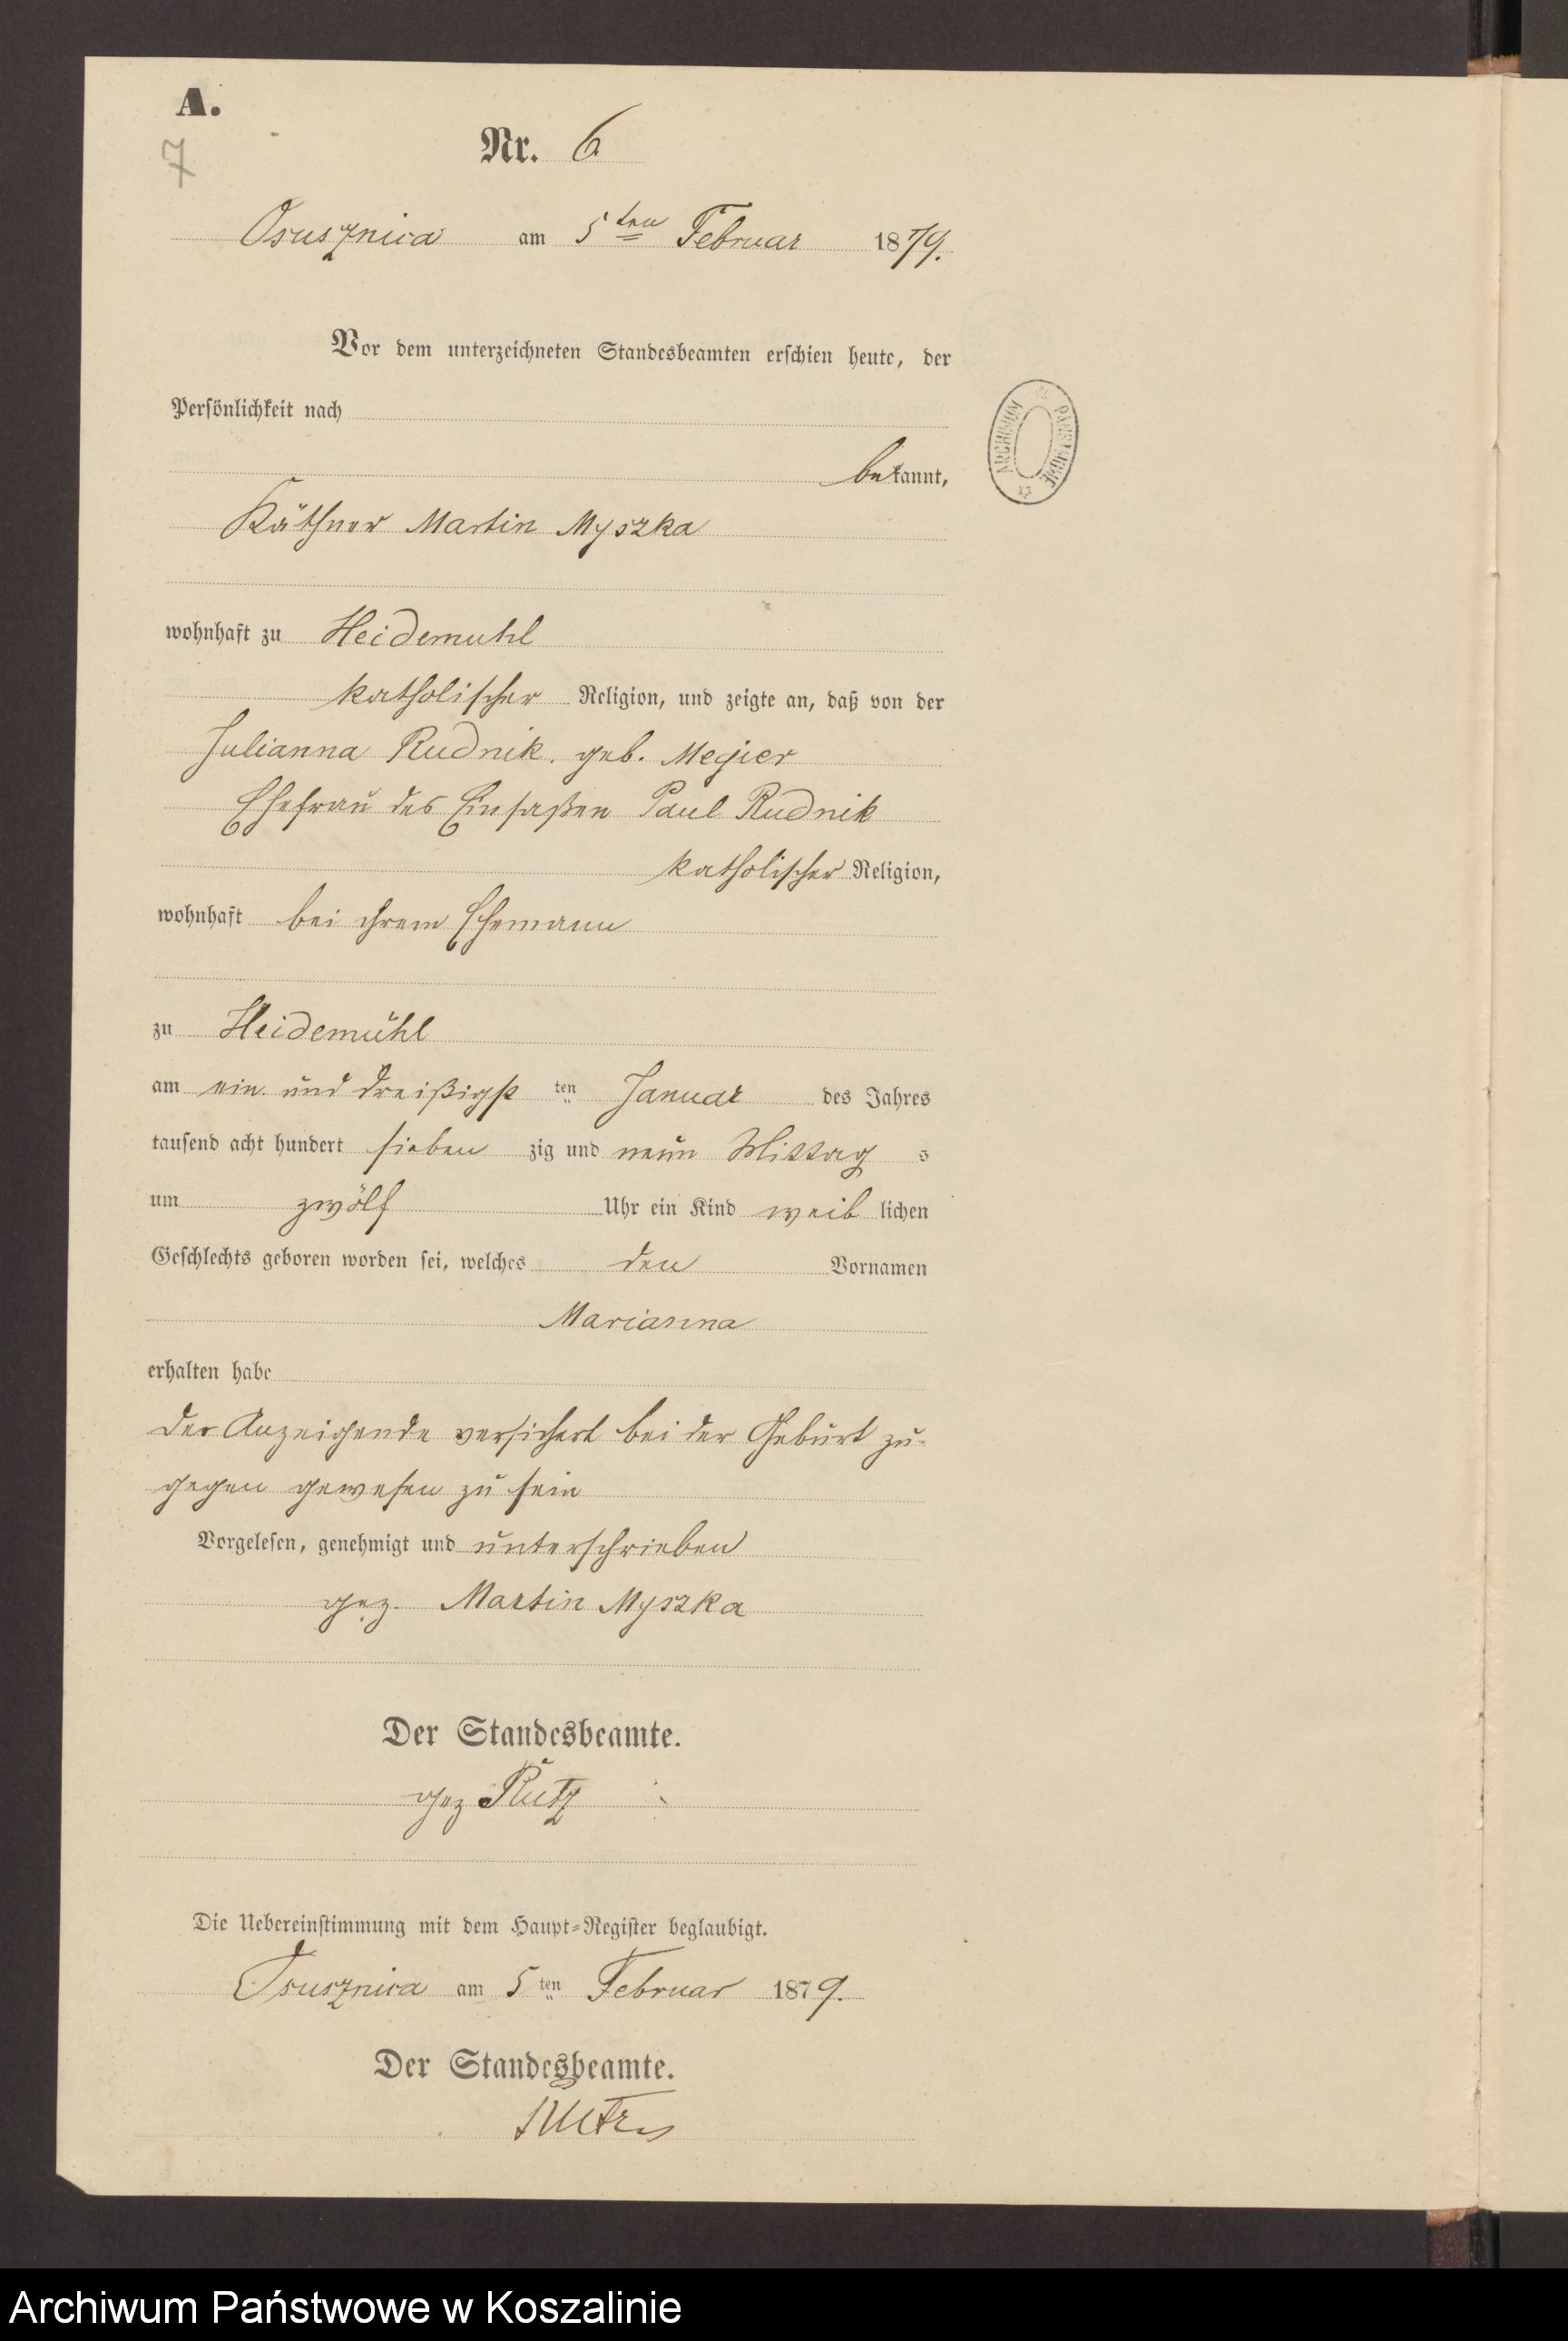 A.
7
Nr. 6
Osusznica am 5ten Februar 1879.
Vor dem unterzeichneten Standesbeamten erschien heute, der
Persönlichkeit nach
bekannt,
Käthner Martin Myszka
wohnhaft zu Heidemuhl
katholischer Religion, und zeigte an, daß von der
Julianna Rudnik. geb. Megier
Ehefrau des Einsaßen Paul Rudnik
katholischer Religion,
wohnhaft bei ihrem Ehemann
zu Heidemühl
am ein und dreißigst ten Januar des Jahres
tausend acht hundert sieben zig und neun Mittag s
um zwölf Uhr ein Kind weib lichen
Geschlechts geboren worden sei, welches den Vornamen
Marianna
erhalten habe
Der Anzeigende versichert bei der Geburt zu-
gegen gewesen zu sein
Vorgelesen, genehmigt und unterschrieben
gez. Martin Myszka
Der Standesbeamte.
gez Rutz
Die Uebereinstimmung mit dem Haupt-Register beglaubigt.
Osusznica am 5 ten Februar 1879.
Der Standesbeamte.
Rutz
ARCHIWUM PAŃSTWOWE
Archiwum Państwowe w Koszalinie